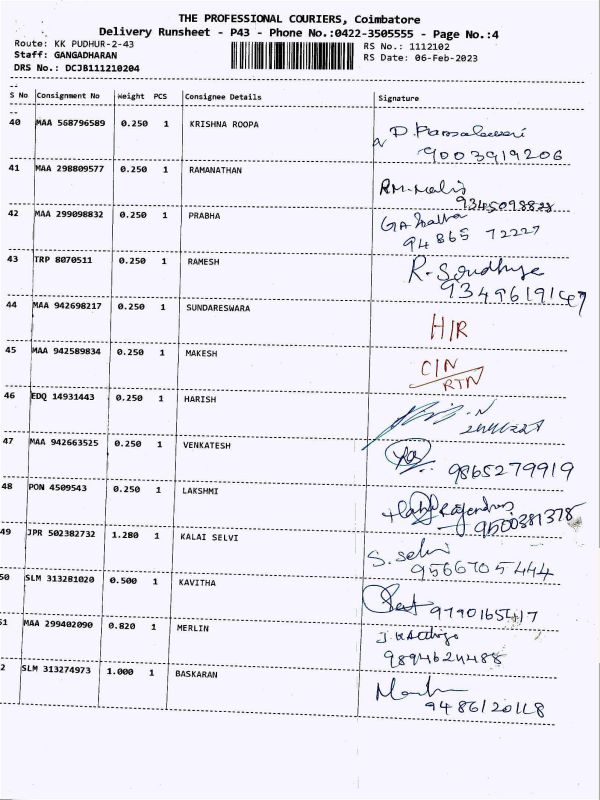 THE PROFESSIONAL COURIERS, Coimbatore
Delivery Runsheet - P43 - Phone No.:0422-3505555 - Page No.:4
Route: KK PUDHUR-2-43 RS No.: 1112102
Staff: GANGADHARAN RS Date: 06-Feb-2023
DRS No.: DCJB111210204
S No Consignment No Weight PCS Consignee Details Signature
40 MAA 568796589 0.250 1 KRISHNA ROOPA
9003919206
41 MAA 298809577 0.250 1 RAMANATHAN
9345098828
42 MAA 299098832 0.250 1 PRABHA
94865 72227
43 TRP 8070511 0.250 1 RAMESH R. Sondhya
9349619147
44 MAA 942698217 0.250 1 SUNDARESWARA H/R
45 MAA 942589834 0.250 1 MAKESH C/N
RTN
46 EDQ 14931443 0.250 1 HARISH
47 MAA 942663525 0.250 1 VENKATESH
9865279919
48 PON 4509543 0.250 1 LAKSHMI Rajendran
9500381378
49 JPR 502382732 1.280 1 KALAI SELVI S. Selvi
9566705444
50 SLM 313281020 0.500 1 KAVITHA
9790165417
51 MAA 299402090 0.820 1 MERLIN
9894624488
2 SLM 313274973 1.000 1 BASKARAN
9486120118